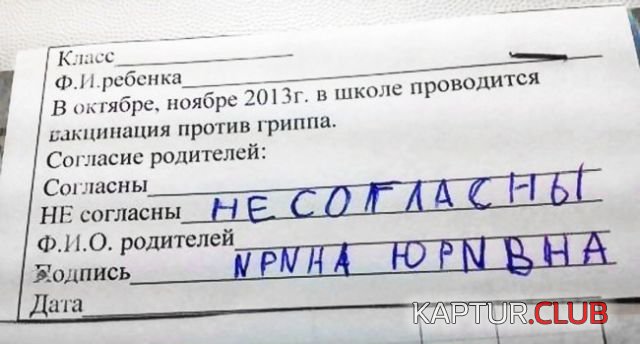 Класс
Ф.И.ребенка
В октябре, ноябре 2013г. в школе проводится
вакцинация против гриппа.
Согласие родителей:
Согласны
НЕ согласны НЕ СОГЛАСНЫ
Ф.И.О. родителей
Подпись NPNHA ЮРNВНА
Дата
KAPTUR.CLUB